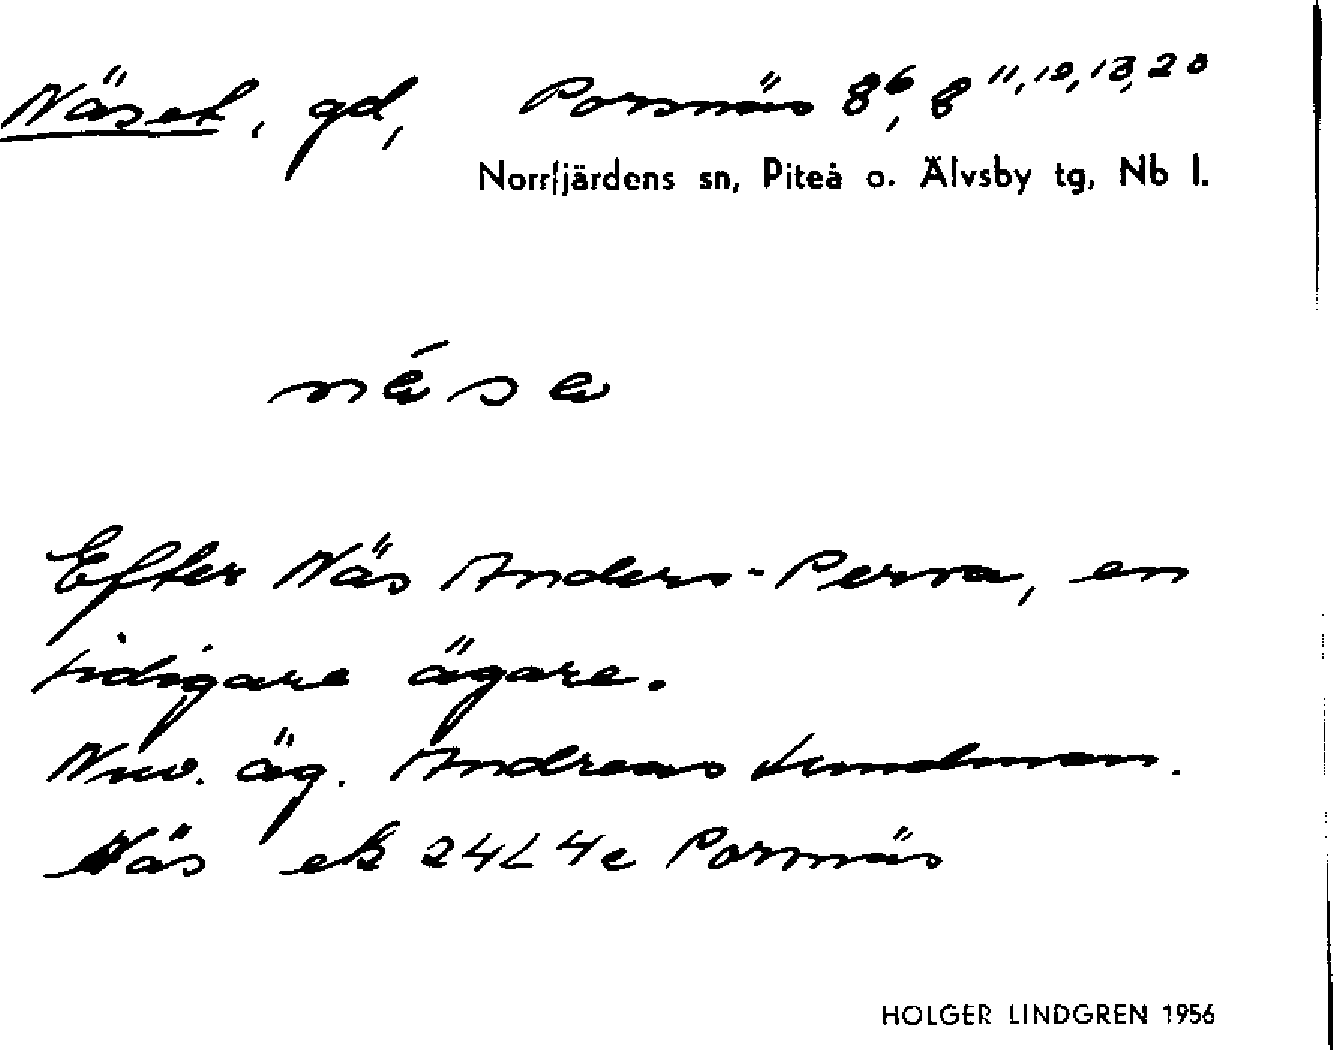 Näset, gd, Porsnäs 8⁶, 8¹¹,¹⁰,¹³,²⁰
Norrfjärdens sn, Piteå o. Älvsby tg, Nb l.
nása
Efter Näs Anders-Perra, en
tidigare ägare.
Nuv. äg. Andreas Lundman.
Näs ek 24L4e Porsnäs
HOLGER LINDGREN 1956